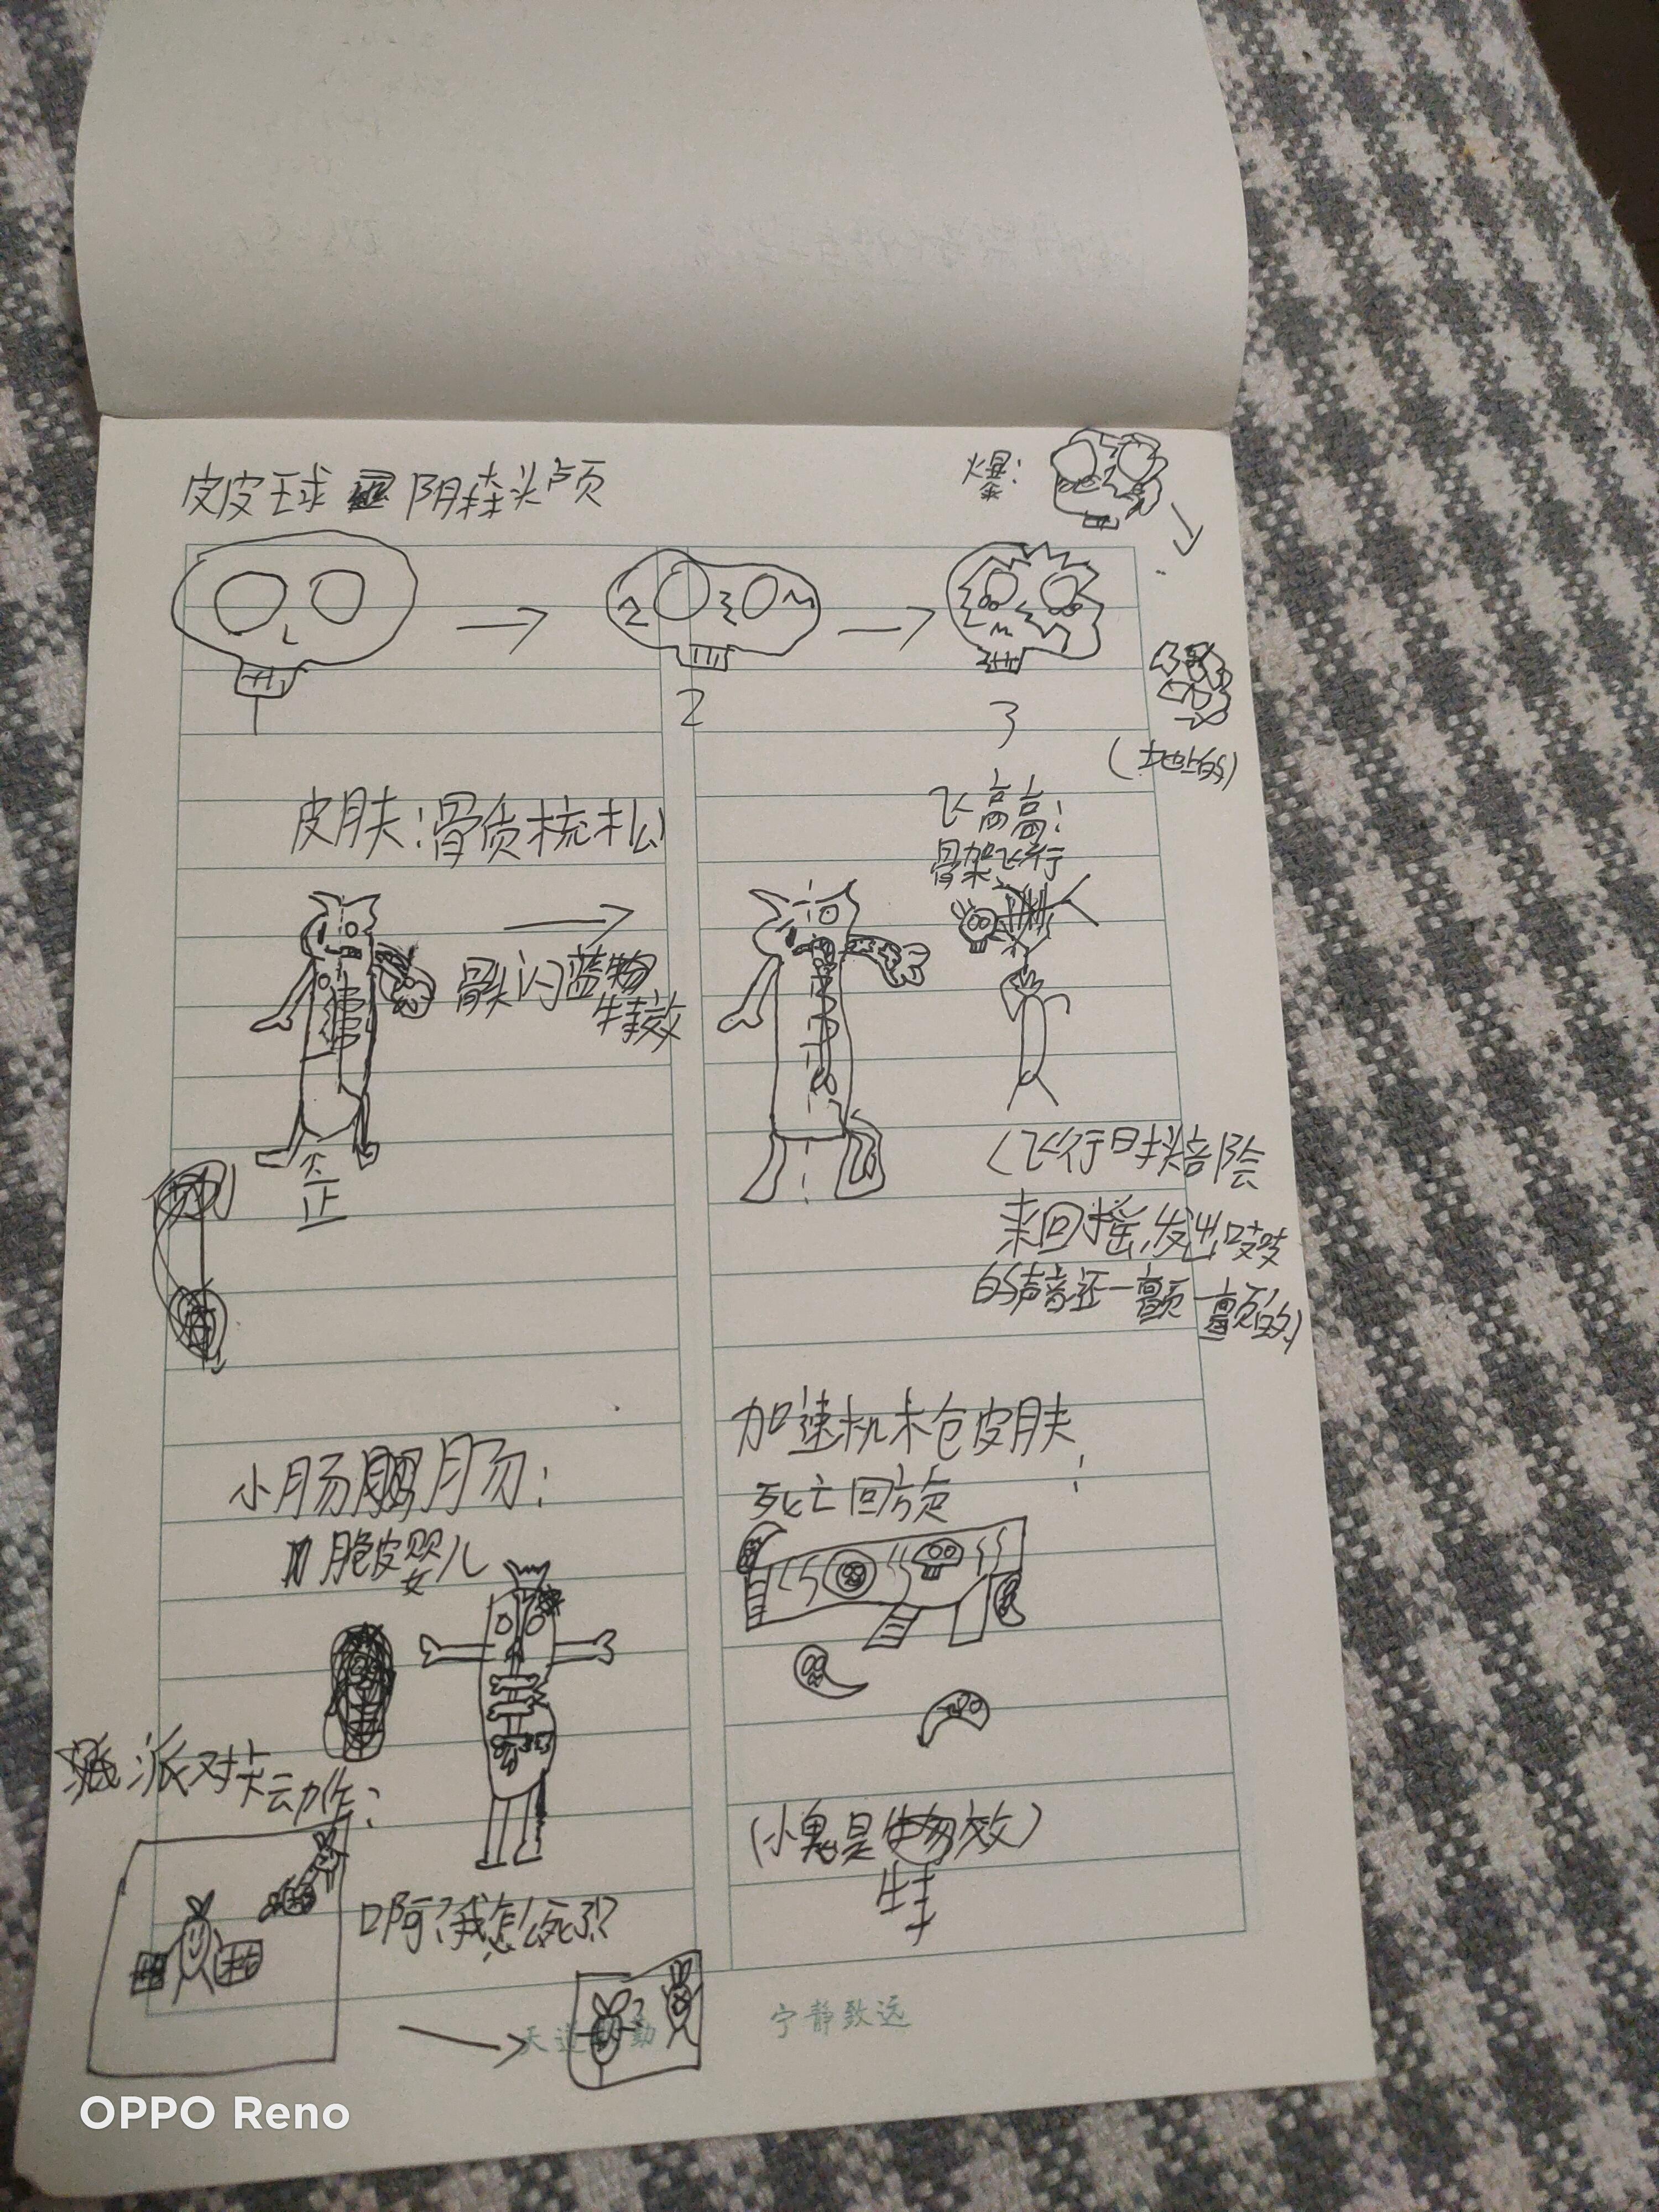 皮皮球 阴森头颅
爆:
2
3
(地上的)
皮肤:骨质梳松
飞高高:
骨架飞行
骨头闪蓝物
特效
歪
(飞行时头部会
来回摇,发出吱吱
的声音还一颤一颤的)
小肠肠:
脆皮婴儿
加速机枪皮肤:
死亡回旋
派对卡动作:
(小鬼是特效)
啊?我怎么死了?
天道酬勤
宁静致远
OPPO Reno